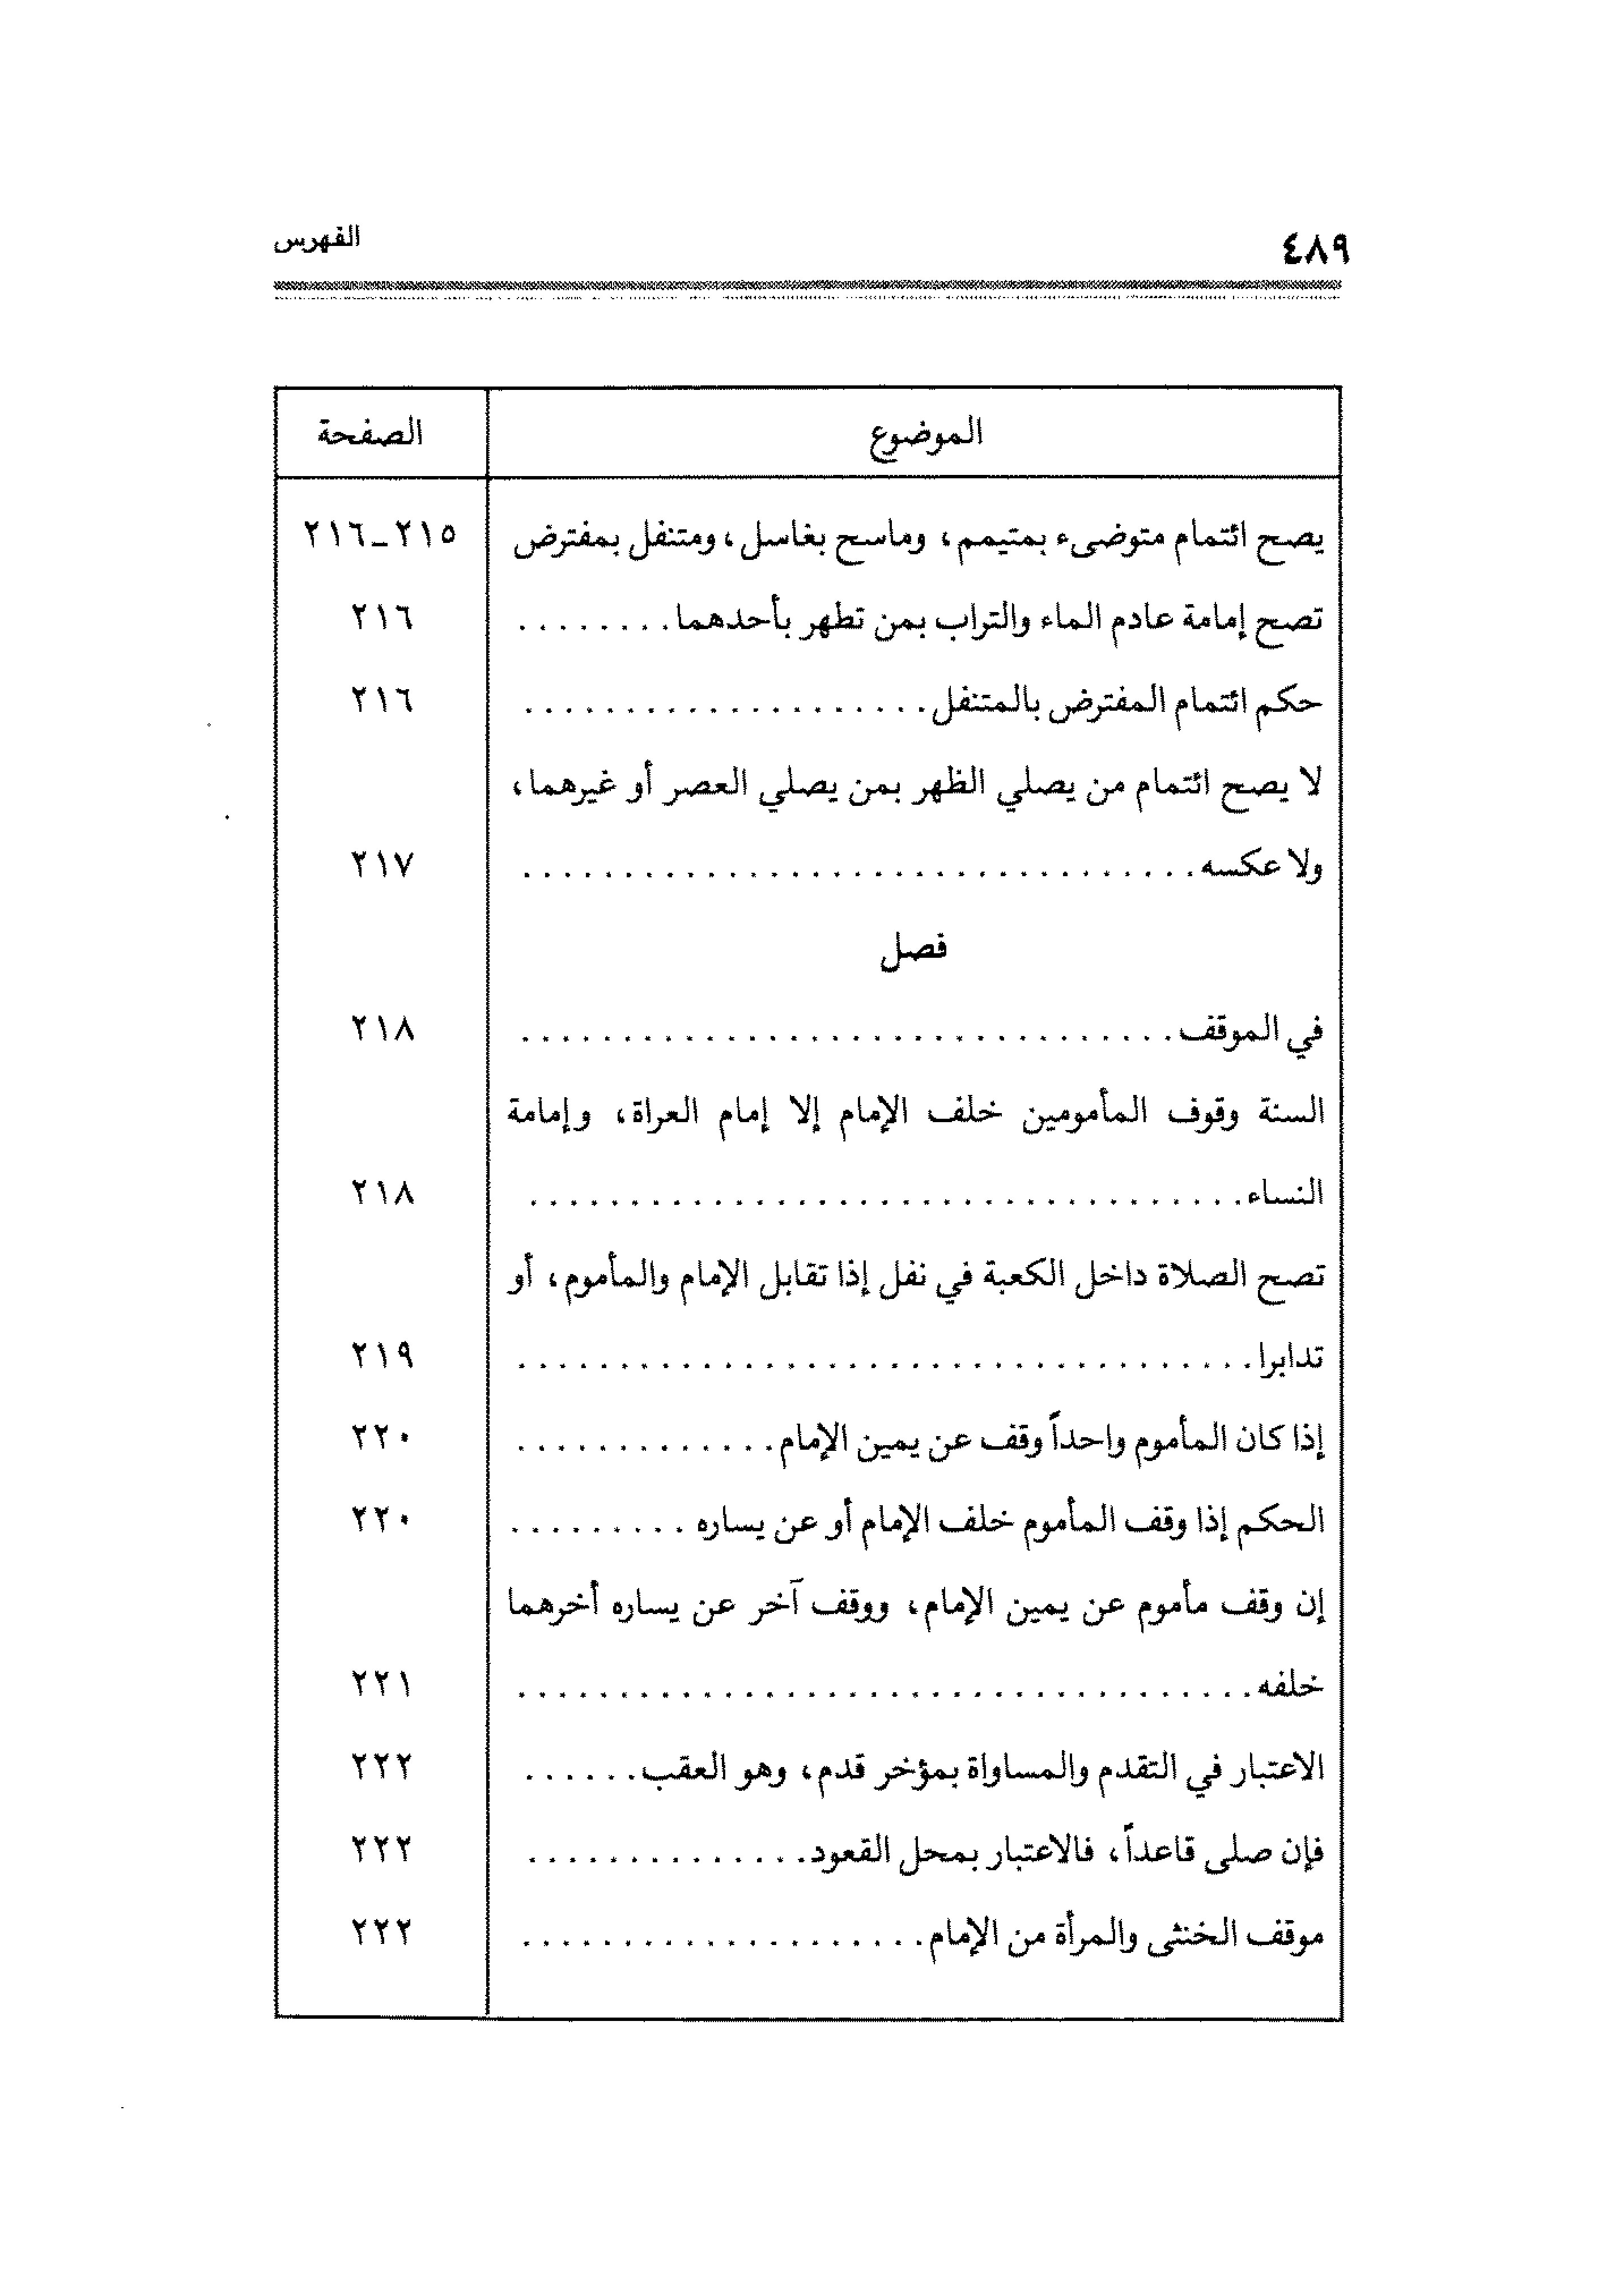 ٤٨٩ الفهرس
الموضوع الصفحة
يصح ائتمام متوضىء بمتيمم، وماسح بغاسل، ومتنفل بمفترض ٢١٥_٢١٦
تصح إمامة عادم الماء والتراب بمن تطهر بأحدهما ........ ٢١٦
حكم ائتمام المفترض بالمتنفل .................... ٢١٦
لا يصح ائتمام من يصلي الظهر بمن يصلي العصر أو غيرهما،
ولا عكسه ................................. ٢١٧
فصل
في الموقف ................................ ٢١٨
السنة وقوف المأمومين خلف الإمام إلا إمام العراة، وإمامة
النساء ................................... ٢١٨
تصح الصلاة داخل الكعبة في نفل إذا تقابل الإمام والمأموم، أو
تدابرا .................................... ٢١٩
إذا كان المأموم واحداً وقف عن يمين الإمام ............. ٢٢٠
الحكم إذا وقف المأموم خلف الإمام أو عن يساره ......... ٢٢٠
إن وقف مأموم عن يمين الإمام، ووقف آخر عن يساره أخرهما
خلفه .................................... ٢٢١
الاعتبار في التقدم والمساواة بمؤخر قدم، وهو العقب ...... ٢٢٢
فإن صلى قاعداً، فالاعتبار بمحل القعود .............. ٢٢٢
موقف الخنثى والمرأة من الإمام .................... ٢٢٢